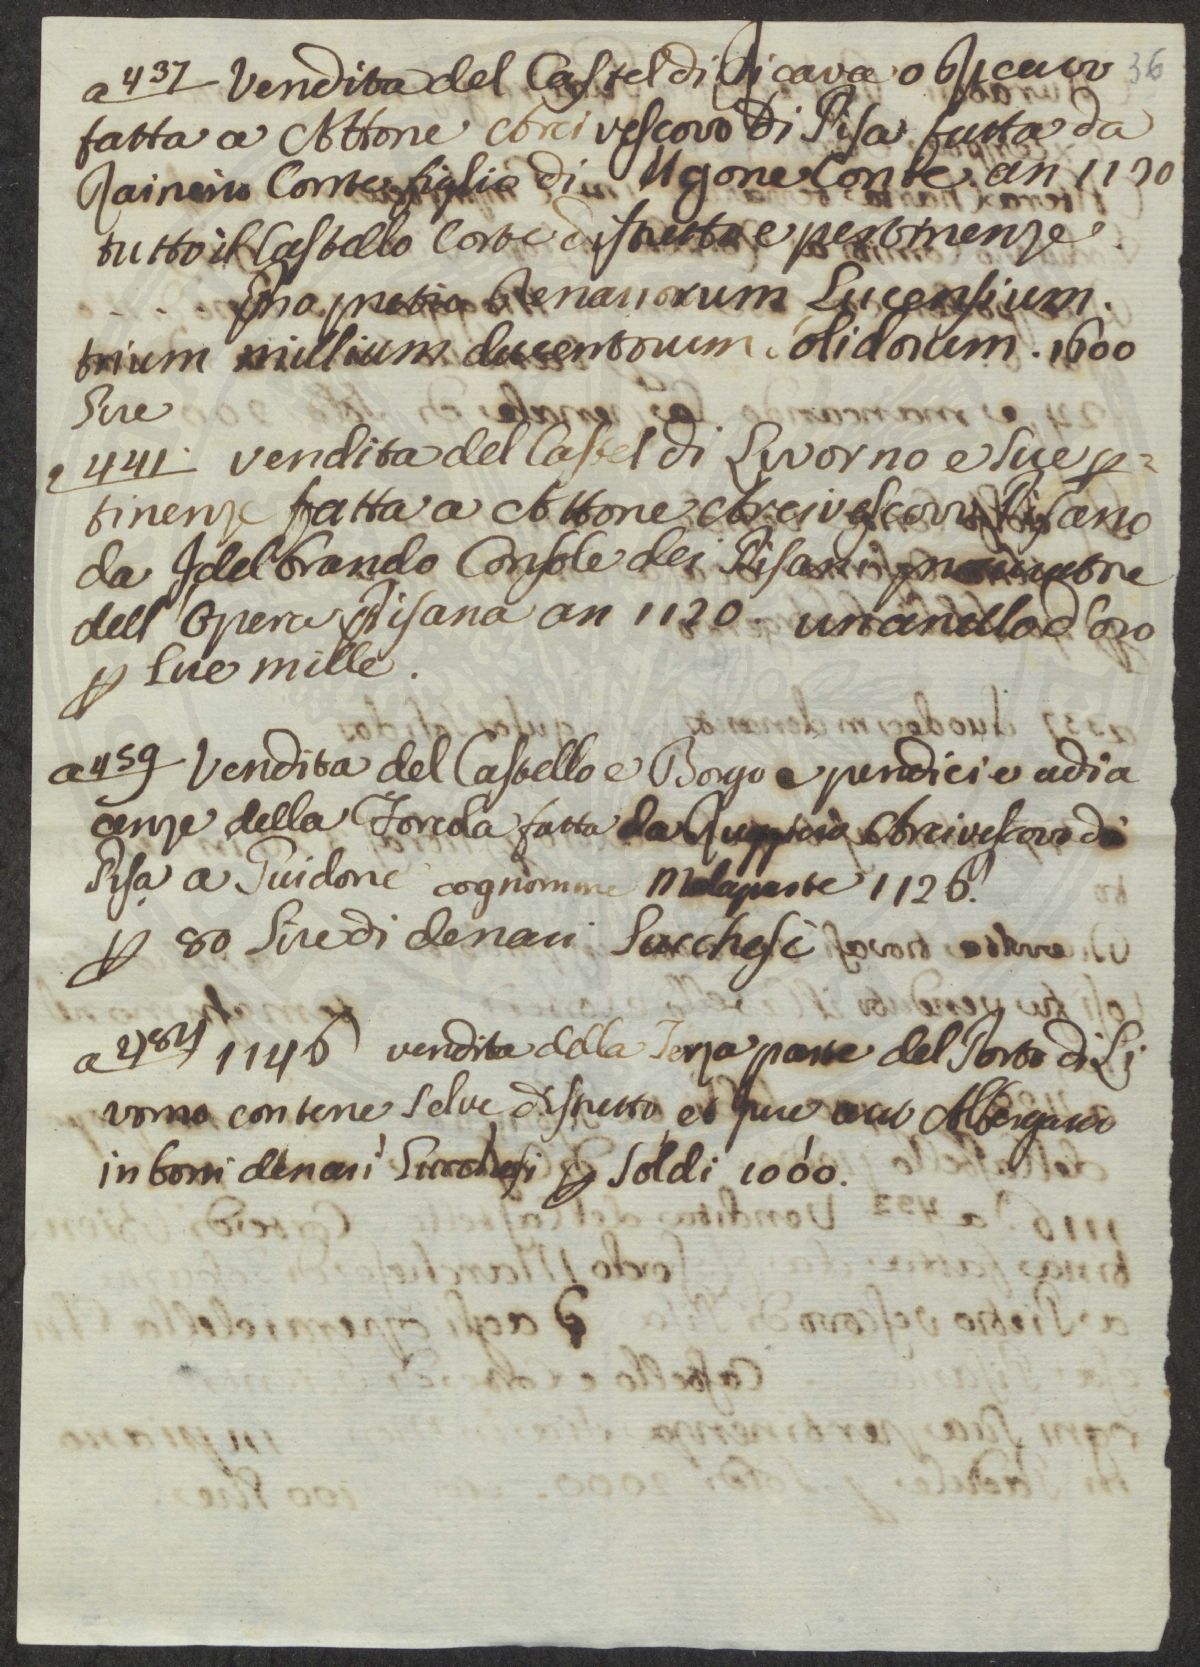 36
a 437 Vendita del Castel di Bicava o
fatta a Attone Arcivescovo di Pisa fatta da
Raineiro Conte figlio di Ugone Conte. an 1120
tutto il Castello Corte distretto e pertinenze.
pro pretio Denariorum Lucensium.
trium millium ducentorum solidorum. 1600
Lire
a 441. vendita del Castel di Livorno e sue p=
tinenze fatta a Attone Arcivescovo Pisano
da Idelbrando Console dei Pisani
dell Opera Pisana an 1120. un anello d'oro
p Lire mille.
a 459 Vendita del Castello e Borgo e pendici e adia
cenze della Forcola fatta da Ruggiero Arcivescovo di
Pisa a Guidone cognomine Malaparte 1126.
p 80 Lire di denari Lucchesi
a 484 1146 vendita della Terza parte del Porto di Li
vorno con terre selve distretto, et jure Albergarie
in boni denari Lucchesi p soldi 1000.